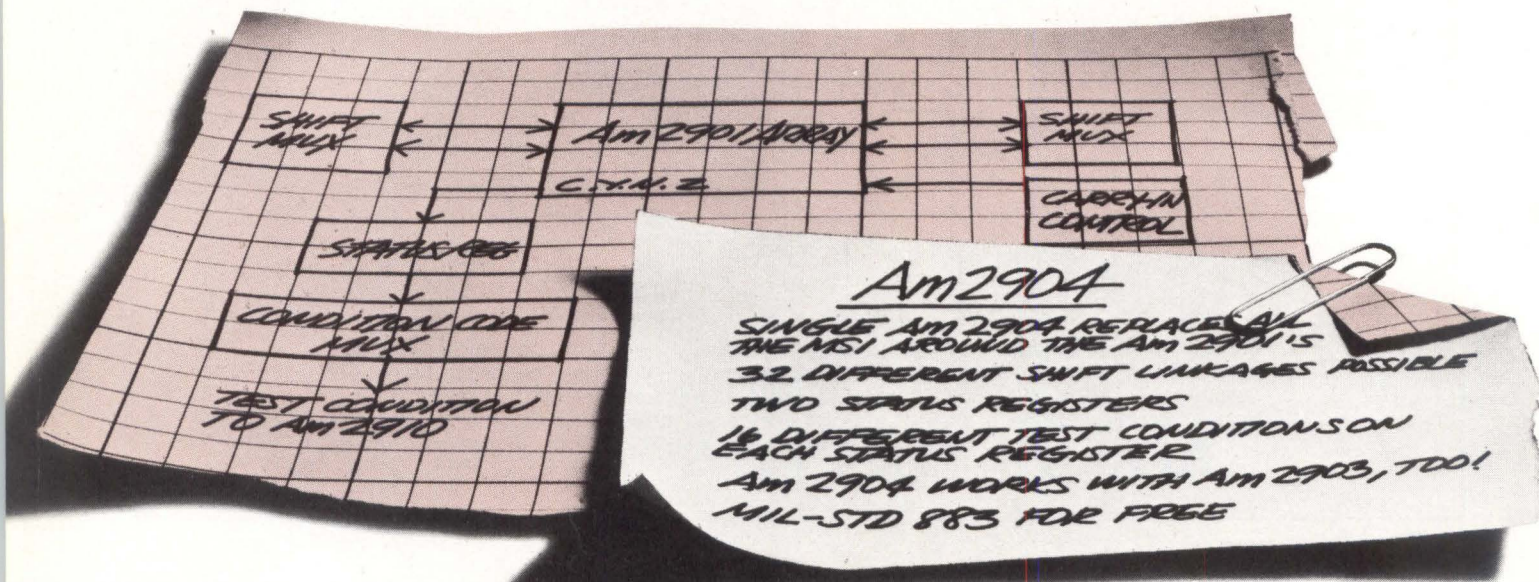 SHIFT
MUX
Am 2901 ARRAY
SHIFT
MUX
C.Y.N.Z
CARRY-IN
CONTROL
STATUS REG
CONDITION CODE
MUX
TEST CONDITION
TO Am 2910
Am2904
SINGLE Am 2904 REPLACES ALL
THE MSI AROUND THE Am 2901'S
32 DIFFERENT SHIFT LINKAGES POSSIBLE
TWO STATUS REGISTERS
16 DIFFERENT TEST CONDITIONS ON
EACH STATUS REGISTER
Am 2904 WORKS WITH Am 2903, TOO!
MIL-STD 883 FOR FREE